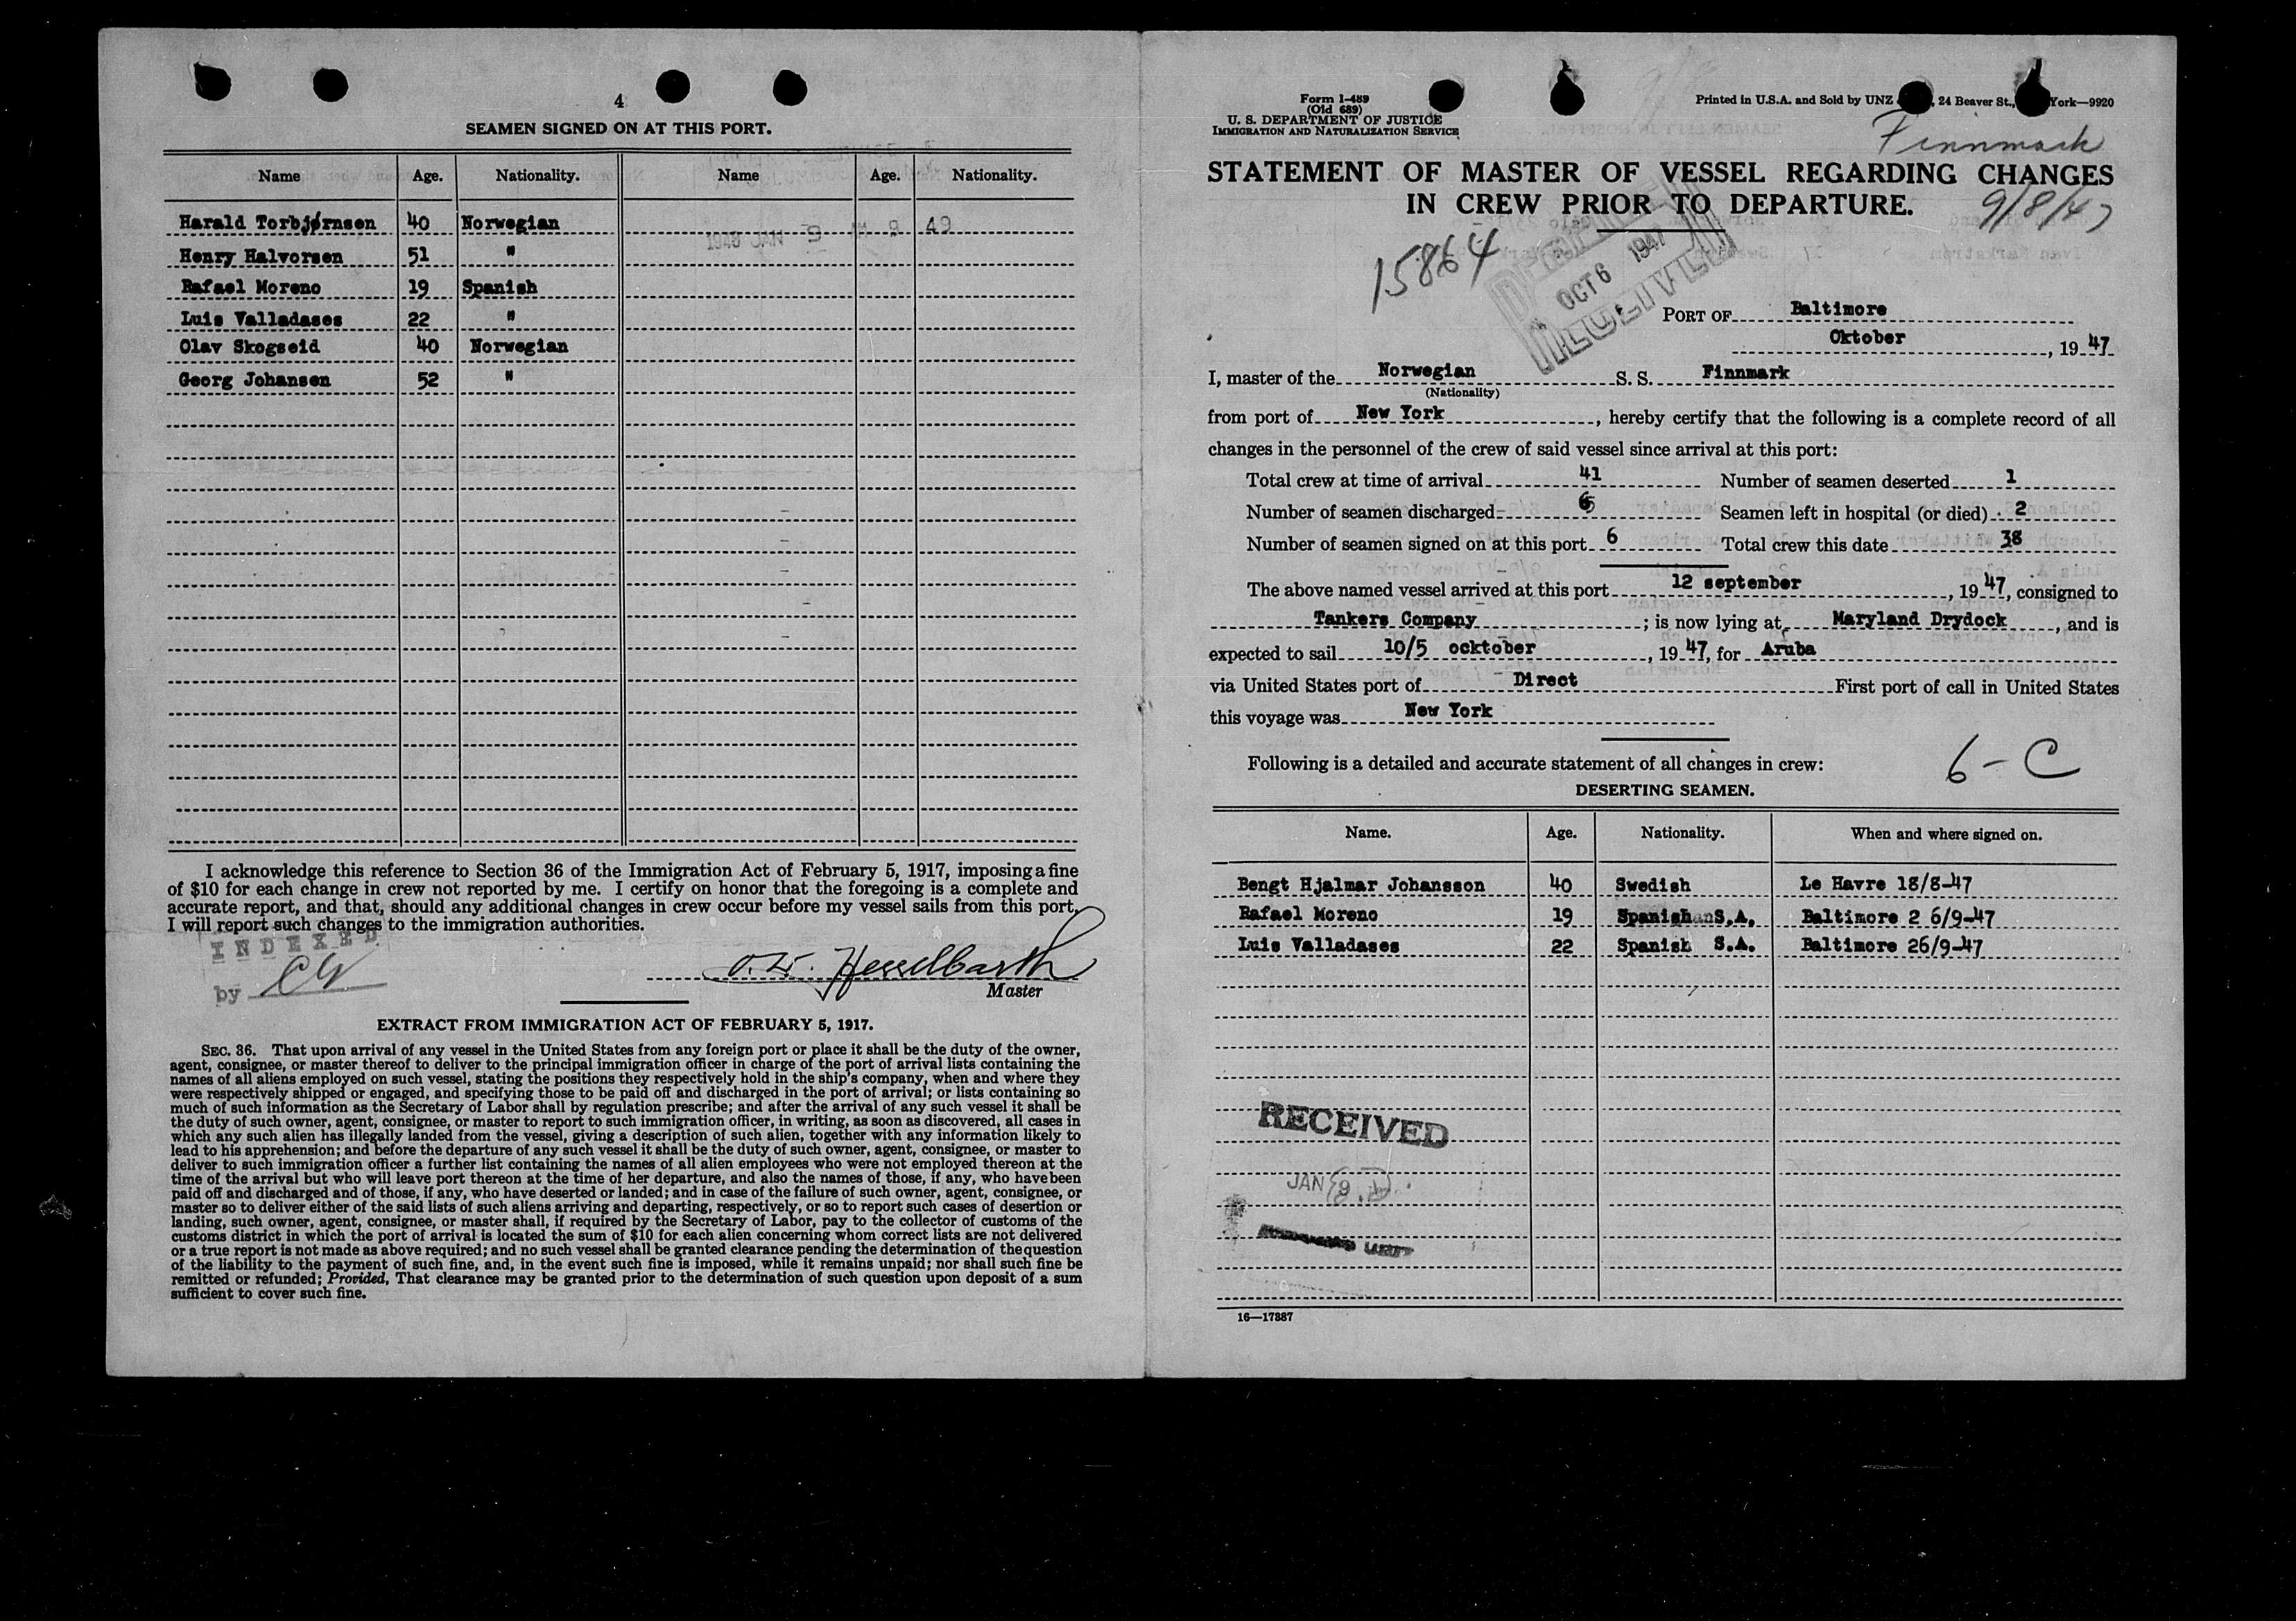 4
SEAMEN SIGNED ON AT THIS PORT.
Name Age. Nationality. Name Age. Nationality.
Harald Torbjørnsen 40 Norwegian
1948 JAN 9 AM 9 49
Henry Halvorsen 51 "
Rafael Moreno 19 Spanish
Luis Valladases 22 "
Olav Skogseid 40 Norwegian
Georg Johansen 52 "
I acknowledge this reference to Section 36 of the Immigration Act of February 5, 1917, imposing a fine
of $10 for each change in crew not reported by me. I certify on honor that the foregoing is a complete and
accurate report, and that, should any additional changes in crew occur before my vessel sails from this port,
I will report such changes to the immigration authorities.
INDEXED
by
O.W. Hesselbarth
Master
EXTRACT FROM IMMIGRATION ACT OF FEBRUARY 5, 1917.
SEC. 36. That upon arrival of any vessel in the United States from any foreign port or place it shall be the duty of the owner,
agent, consignee, or master thereof to deliver to the principal immigration officer in charge of the port of arrival lists containing the
names of all aliens employed on such vessel, stating the positions they respectively hold in the ship's company, when and where they
were respectively shipped or engaged, and specifying those to be paid off and discharged in the port of arrival; or lists containing so
much of such information as the Secretary of Labor shall by regulation prescribe; and after the arrival of any such vessel it shall be
the duty of such owner, agent, consignee, or master to report to such immigration officer, in writing, as soon as discovered, all cases in
which any such alien has illegally landed from the vessel, giving a description of such alien, together with any information likely to
lead to his apprehension; and before the departure of any such vessel it shall be the duty of such owner, agent, consignee, or master to
deliver to such immigration officer a further list containing the names of all alien employees who were not employed thereon at the
time of the arrival but who will leave port thereon at the time of her departure, and also the names of those, if any, who have been
paid off and discharged and of those, if any, who have deserted or landed; and in case of the failure of such owner, agent, consignee, or
master so to deliver either of the said lists of such aliens arriving and departing, respectively, or so to report such cases of desertion or
landing, such owner, agent, consignee, or master shall, if required by the Secretary of Labor, pay to the collector of customs of the
customs district in which the port of arrival is located the sum of $10 for each alien concerning whom correct lists are not delivered
or a true report is not made as above required; and no such vessel shall be granted clearance pending the determination of the question
of the liability to the payment of such fine, and, in the event such fine is imposed, while it remains unpaid; nor shall such fine be
remitted or refunded; Provided, That clearance may be granted prior to the determination of such question upon deposit of a sum
sufficient to cover such fine.
Form I-489
(Old 689)
U. S. DEPARTMENT OF JUSTICE
IMMIGRATION AND NATURALIZATION SERVICE
Printed in U.S.A. and Sold by UNZ , 24 Beaver St., York—9920
Finnmark
STATEMENT OF MASTER OF VESSEL REGARDING CHANGES
IN CREW PRIOR TO DEPARTURE.
9/8/47
15864
OCT 6 1947
RECEIVED
PORT OF Baltimore
Oktober , 19 47
I, master of the Norwegian S. S. Finnmark
(Nationality)
from port of New York , hereby certify that the following is a complete record of all
changes in the personnel of the crew of said vessel since arrival at this port:
Total crew at time of arrival 41 Number of seamen deserted 1
Number of seamen discharged 6 Seamen left in hospital (or died) 2
Number of seamen signed on at this port 6 Total crew this date 38
The above named vessel arrived at this port 12 september , 19 47, consigned to
Tankers Company ; is now lying at Maryland Drydock , and is
expected to sail 10/5 ocktober , 19 47, for Aruba
via United States port of Direct First port of call in United States
this voyage was New York
6 - C
Following is a detailed and accurate statement of all changes in crew:
DESERTING SEAMEN.
Name. Age. Nationality. When and where signed on.
Bengt Hjalmar Johansson 40 Swedish Le Havre 18/8-47
Rafael Moreno 19 Spanish S.A. Baltimore 2 6/9-47
Luis Valladases 22 Spanish S.A. Baltimore 26/9-47
RECEIVED
JAN 9
UNIT
16—17887